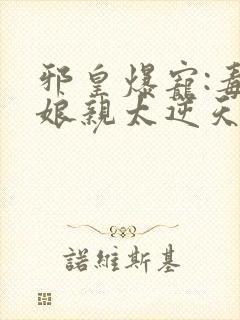 邪皇爆寵:毒
娘親太逆天
諾維斯基